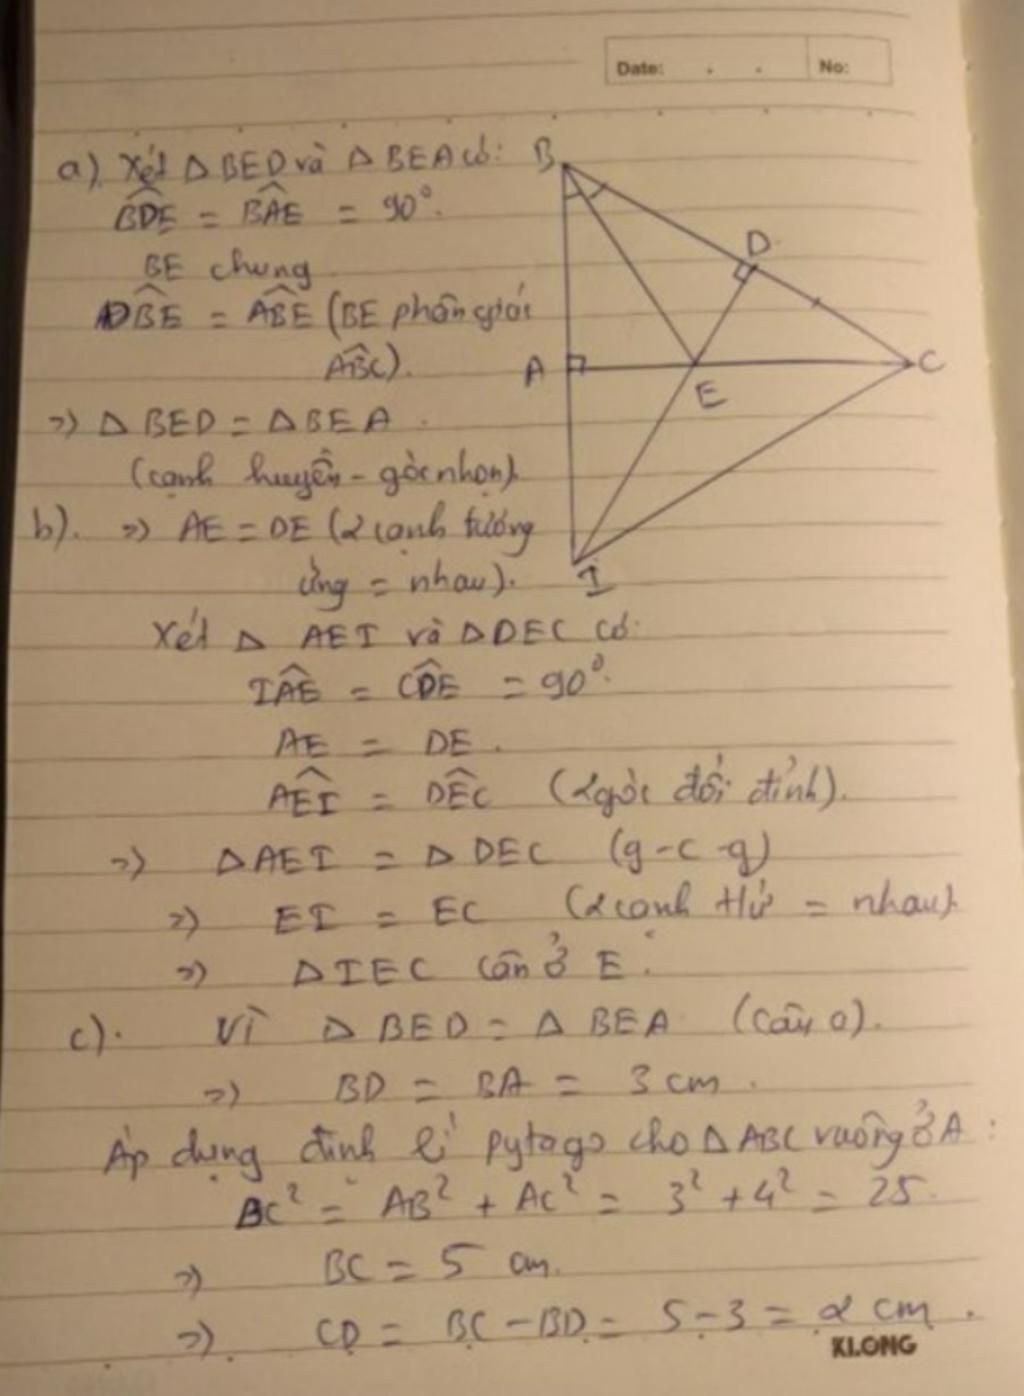 Date: . . No:
a). Xét Δ BED và Δ BEA có:
BDE = BAE = 90°.
BE chung
DBE = ABE (BE phân giác
ABC).
=> Δ BED = Δ BEA.
(cạnh huyền - góc nhọn).
b). => AE = DE (2 cạnh tương
ứng = nhau).
Xét Δ AEI và Δ DEC có:
IAE = CDE = 90°.
AE = DE.
AEI = DEC (2 góc đối đỉnh).
=> Δ AEI = Δ DEC (g-c-g)
=> EI = EC (2 cạnh tứ = nhau).
=> Δ IEC cân ở E.
c). Vì Δ BED = Δ BEA (câu a).
=> BD = BA = 3 cm.
Áp dụng định lí pytago cho Δ ABC vuông ở A:
BC² = AB² + AC² = 3² + 4² = 25.
=> BC = 5 cm.
=> CD = BC - BD = 5 - 3 = 2 cm.
B
D
A
E
C
I
KLONG